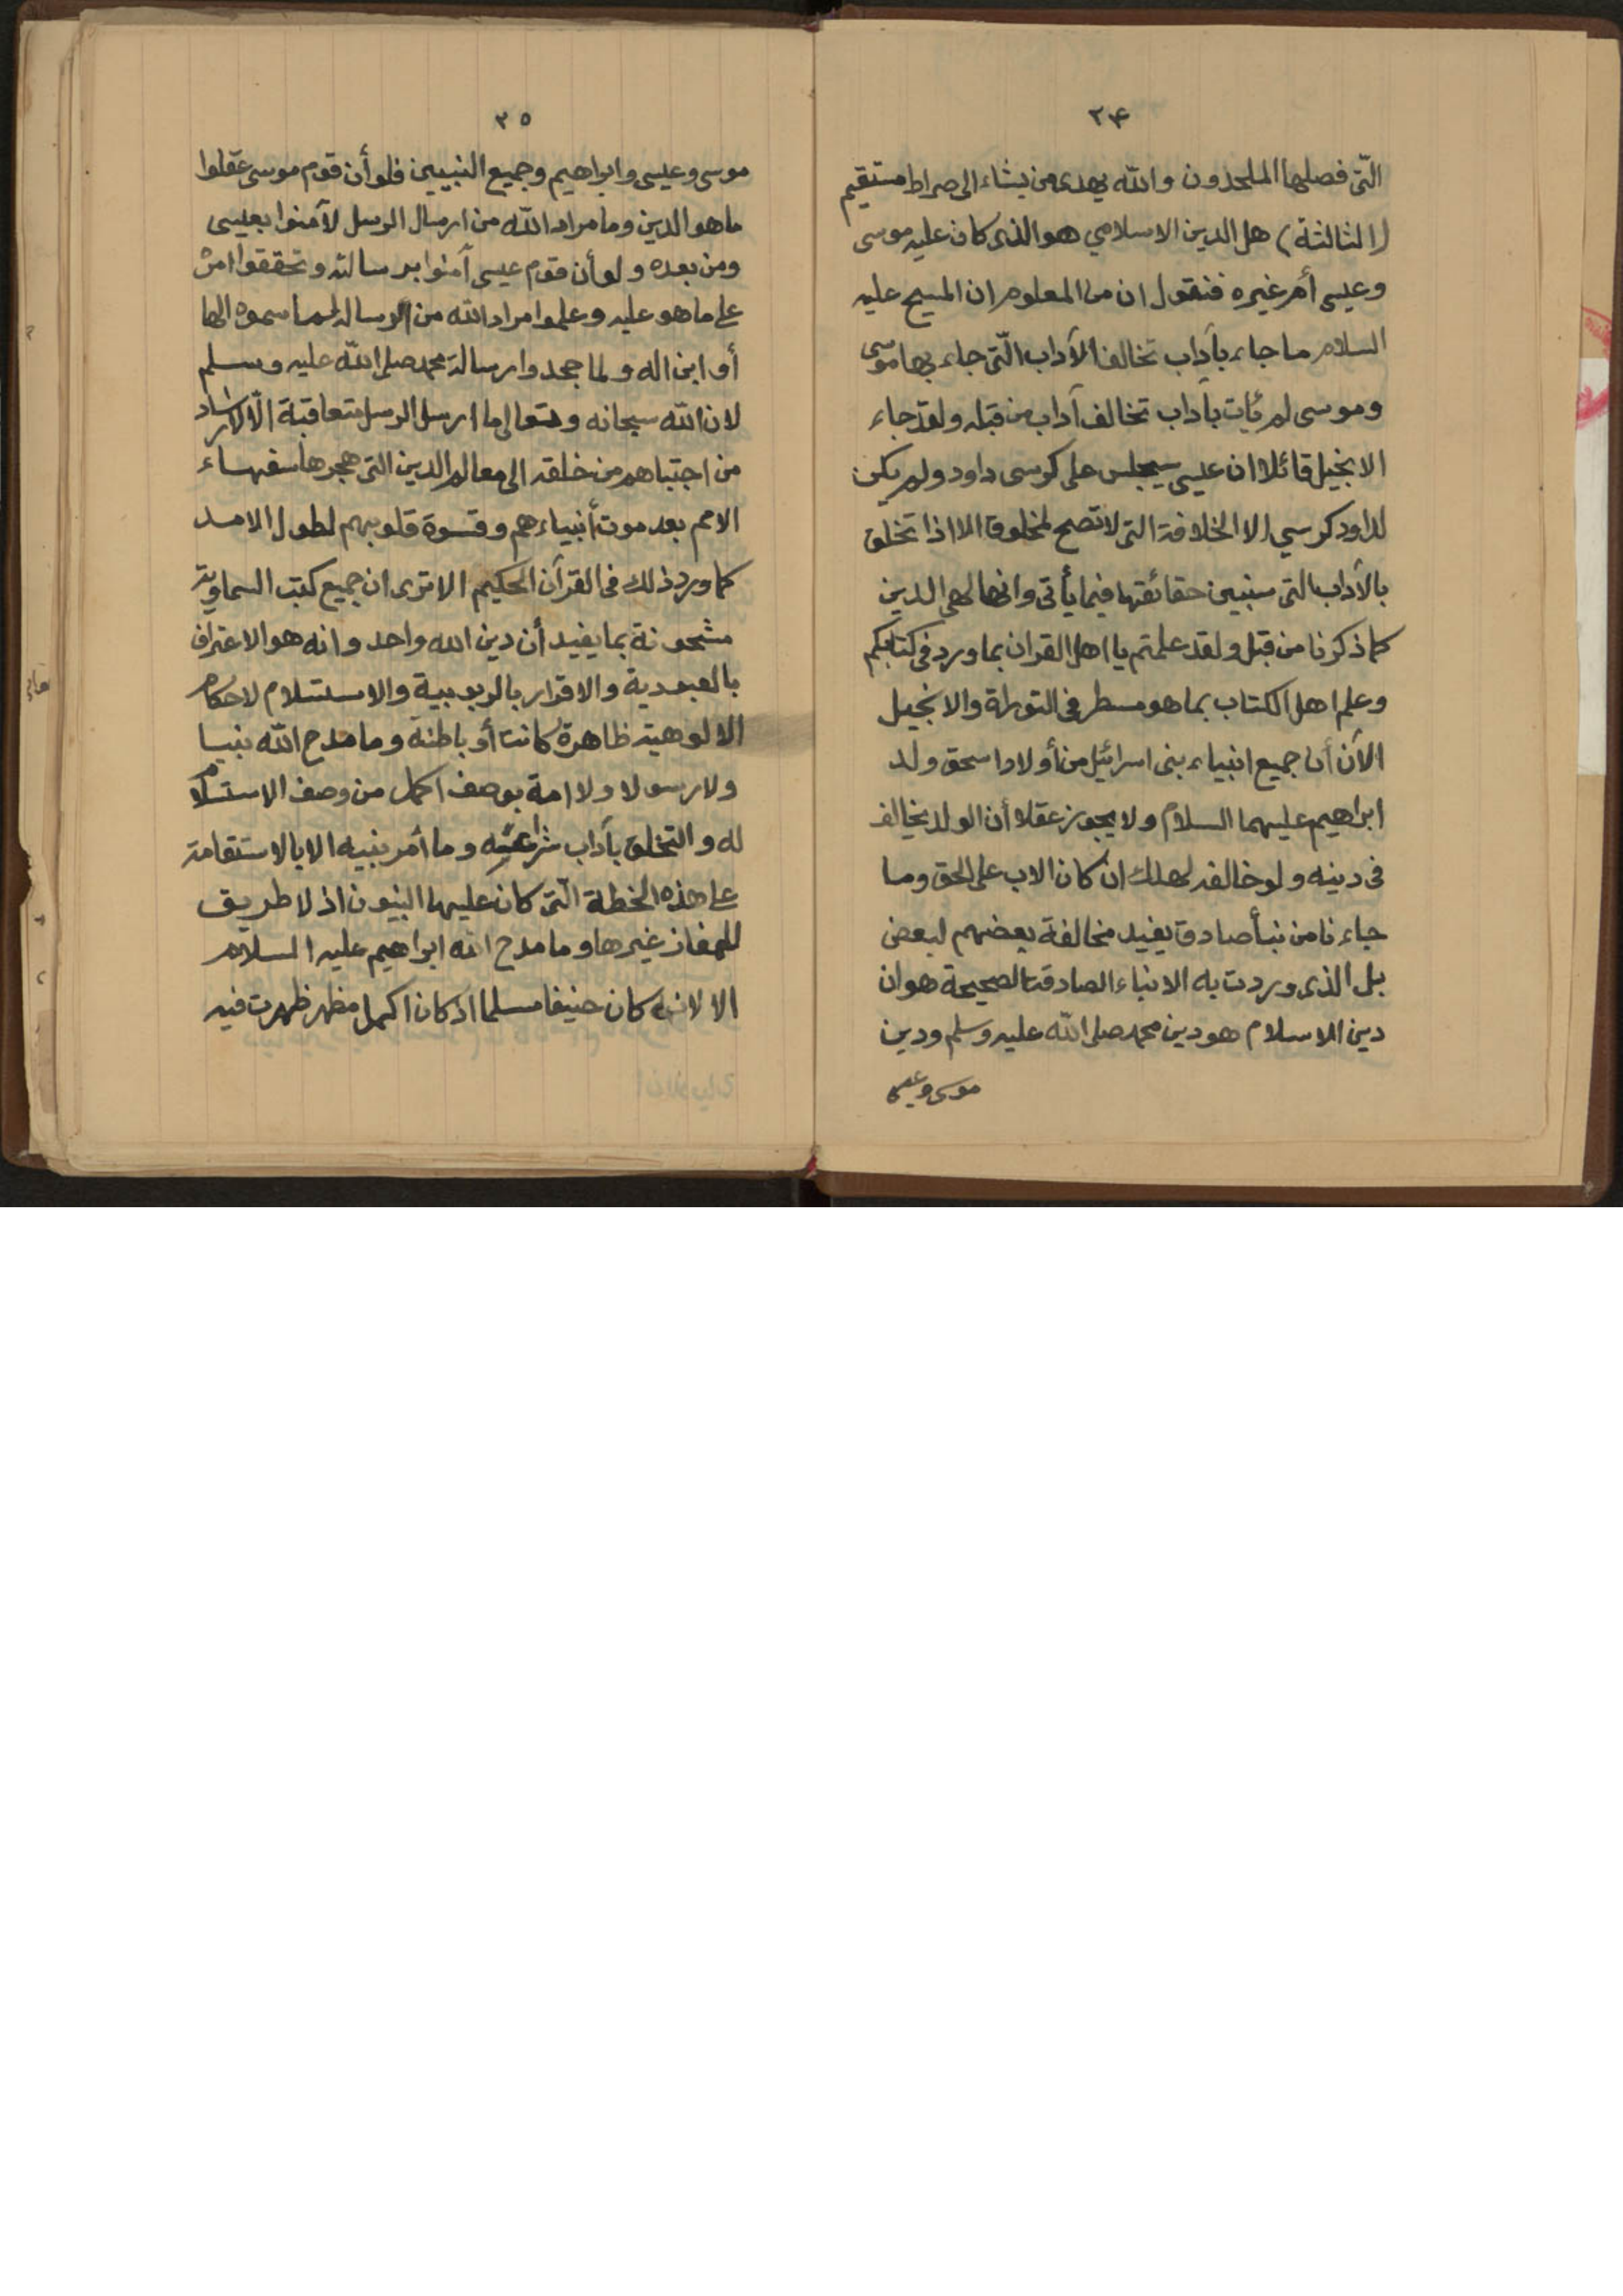 ٢٤
التّى فصلها الملحدون والله يهدى من يشاء الى صراط مستقيم
(الثالثة) هل الدين الاسلامي هو الذى كان عليه موسى
وعيسى أم غيره فنقول ان من المعلوم ان المسيح عليه
السلام ما جاء بآداب تخالف الآداب الّتى جاء بها موسى
وموسى لم يأت بآداب تخالف آداب من قبله ولقد جاء
الانجيل قائلا ان عيسى سيجلس على كرسى داود ولم يكن
لداود كرسي الا الخلافة التى لا تصح لمخلوق الا اذا تخلق
بالآداب التى سنبين حقائقها فيما يأتى وانها لهى الدين
كما ذكرنا من قبل ولقد علمتم يا اهل القران بما ورد فى كتابكم
وعلم اهل الكتاب بما هو مسطر فى التوراة والانجيل
الآن أن جميع انبياء بنى اسرائيل من أولاد اسحق ولد
ابراهيم عليهما السلام ولا يجوز عقلا أن الولد يخالف
فى دينه ولو خالف لهلك ان كان الاب على الحق وما
جاءنا من نبأ صادق يفيد مخالفة بعضهم لبعض
بل الذى وردت به الانباء الصادقة الصحيحة هو ان
دين الاسلام هو دين محمد صلى الله عليه وسلم ودين
موسى وعيسى
٢٥
موسى وعيسى وابراهيم وجميع النبيين فلو أن قوم موسى عقلوا
ما هو الدين وما مراد الله من ارسال الرسل لآمنوا بعيسى
ومن بعده ولو أن قوم عيسى آمنوا برسالته وتحققوا امره
على ما هو عليه وعلموا مراد الله من الرسالة لما سموه الها
أو ابن اله ولما جحدوا رسالة محمد صلى الله عليه وسلم
لان الله سبحانه وتعالى ما ارسل الرسل متعاقبة الّا لارشاد
من اجتباهم من خلقه الى معالم الدين التى هجرها سفهاء
الامم بعد موت أنبياءهم وقسوة قلوبهم لطول الامد
كما ورد ذلك فى القرآن الحكيم الا ترى ان جميع كتب السماوية
مشحونة بما يفيد أن دين الله واحد وانه هو الاعتراف
بالعبودية والاقرار بالربوبية والاستسلام لاحكام
الالوهية ظاهرة كانت أو باطنة وما مدح الله نبيا
ولا رسولا ولا امة بوصف اكمل من وصف الاستسلام
له والتخلق بآداب شرائعه وما أمر نبيه الا بالاستقامة
على هذه الخطة الّتى كان عليها النبيون اذ لا طريق
للمفاز غيرها وما مدح الله ابراهيم عليه السلام
الا لانه كان حنيفا مسلما اذ كان اكمل مظهر ظهرت فيه